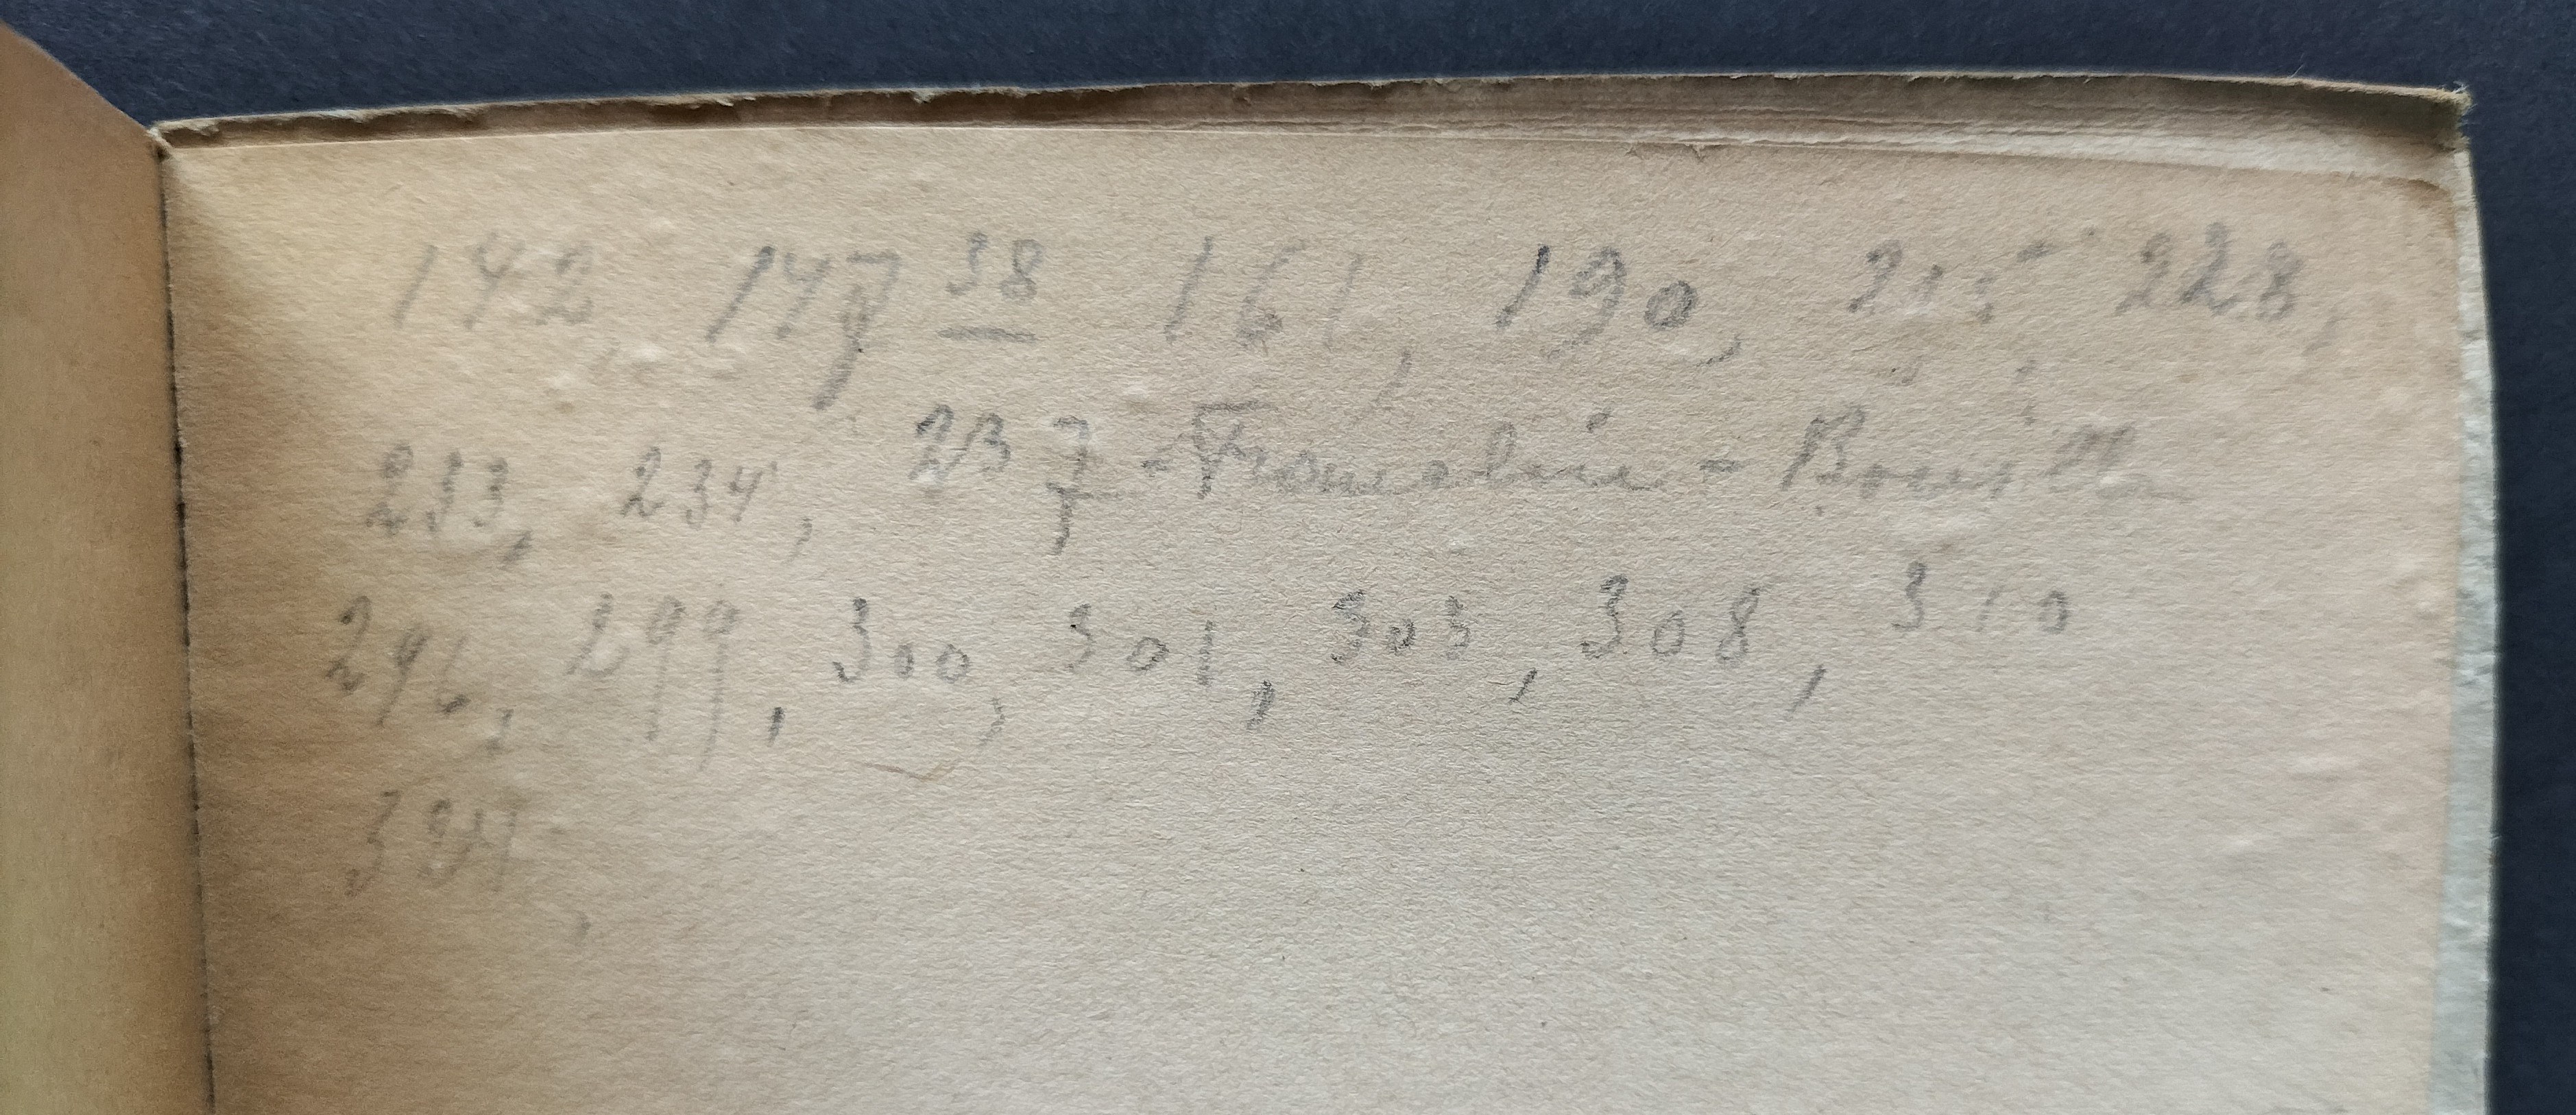 142, 147 38 161, 190, 215 228,
233, 234, 237 - Franklin - Bouillon
296, 299, 300, 301, 303, 308, 310